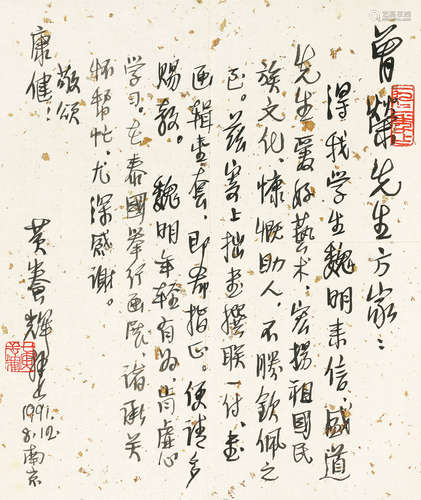 曾榮先生方家：
得我学生魏明来信，盛道
先生爱好藝術，宏揚祖國民
族文化，慷慨助人，不胜钦佩之
至。兹寄上拙画撰联一付，画
画辑壹套，即希指正。便请多
赐教。魏明年轻有为，尚虚心
学习，在泰國举行画展，诸承关
怀帮忙，尤深感谢。
敬颂
康健！
黄养辉拜上
1991.10.
8.南京